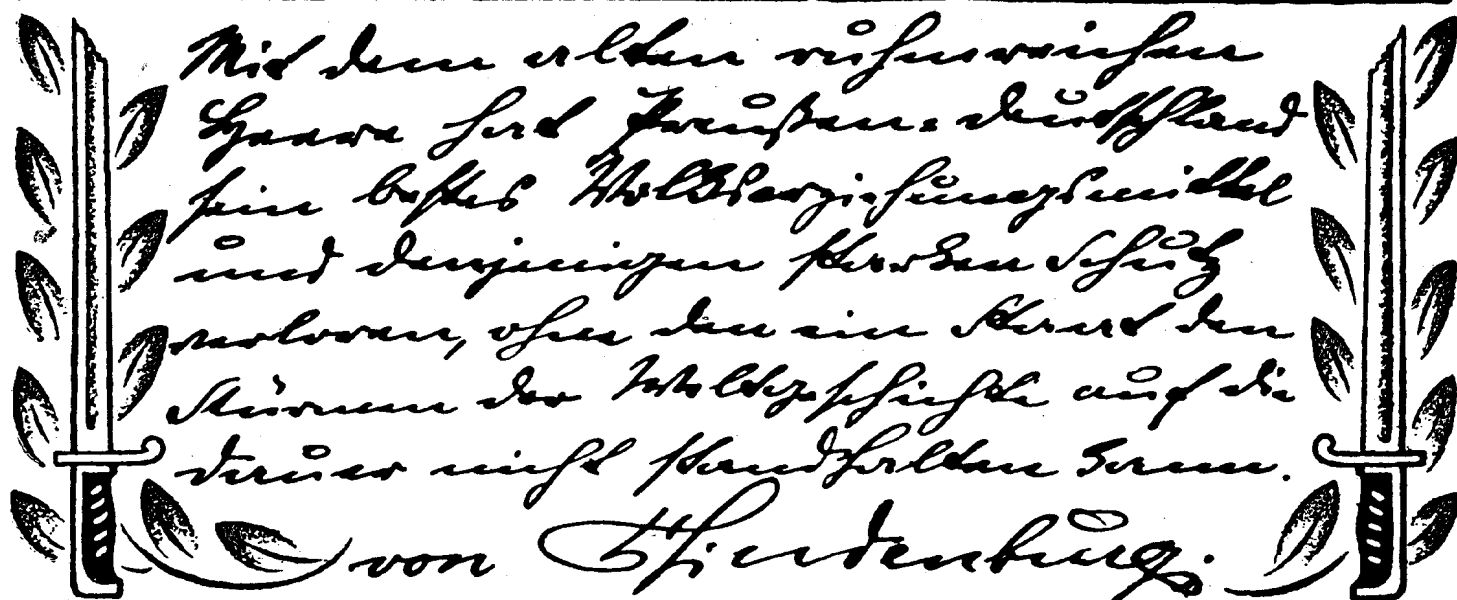 Mit dem alten ruhmreichen
Heere hat Preußen-Deutschland
sein bestes Volkserziehungsmittel
und denjenigen starken Schutz
verloren, ohne den ein Staat den
Stürmen der Weltgeschichte auf die
Dauer nicht standhalten kann.
von Hindenburg.